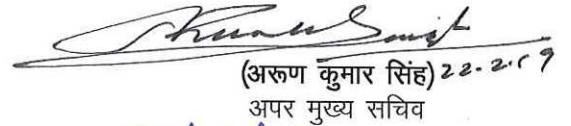 (अरूण कुमार सिंह) 22.2.19
अपर मुख्य सचिव